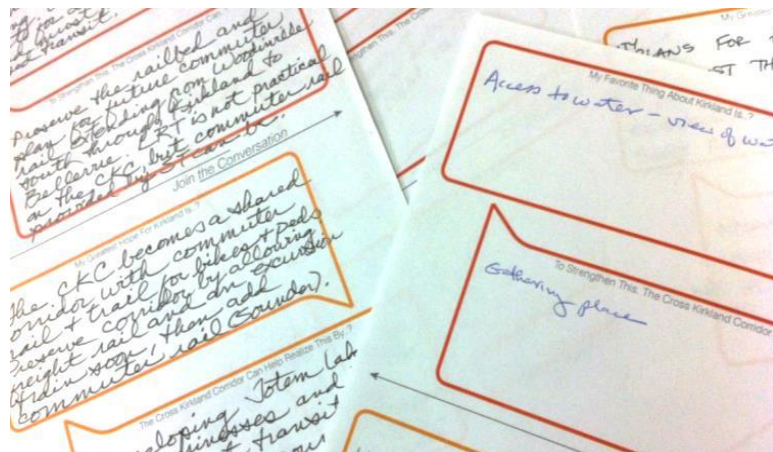 transit.
To Strengthen This, The Cross Kirkland Corridor Can
Preserve the railbed and
plan for future commuter
rail extending from Woodinville
south through Kirkland to
Bellevue. LRT is not practical
on the CKC, but commuter rail
provided by ST can be.
Join the Conversation
My Greatest Hope For Kirkland Is..?
The CKC becomes a shared
corridor with commuter
rail + trail for bikes + peds.
Preserve corridor by allowing
freight rail and an excursion
train soon, then add
commuter rail (Sounder).
The Cross Kirkland Corridor Can Help Realize This By..?
Totem
and
transit
This, The Cross Kirkland Corridor
My Favorite Thing About Kirkland Is..?
Access to water - view of
To Strengthen This, The Cross Kirkland Corridor
Gathering place
My Greatest
FOR